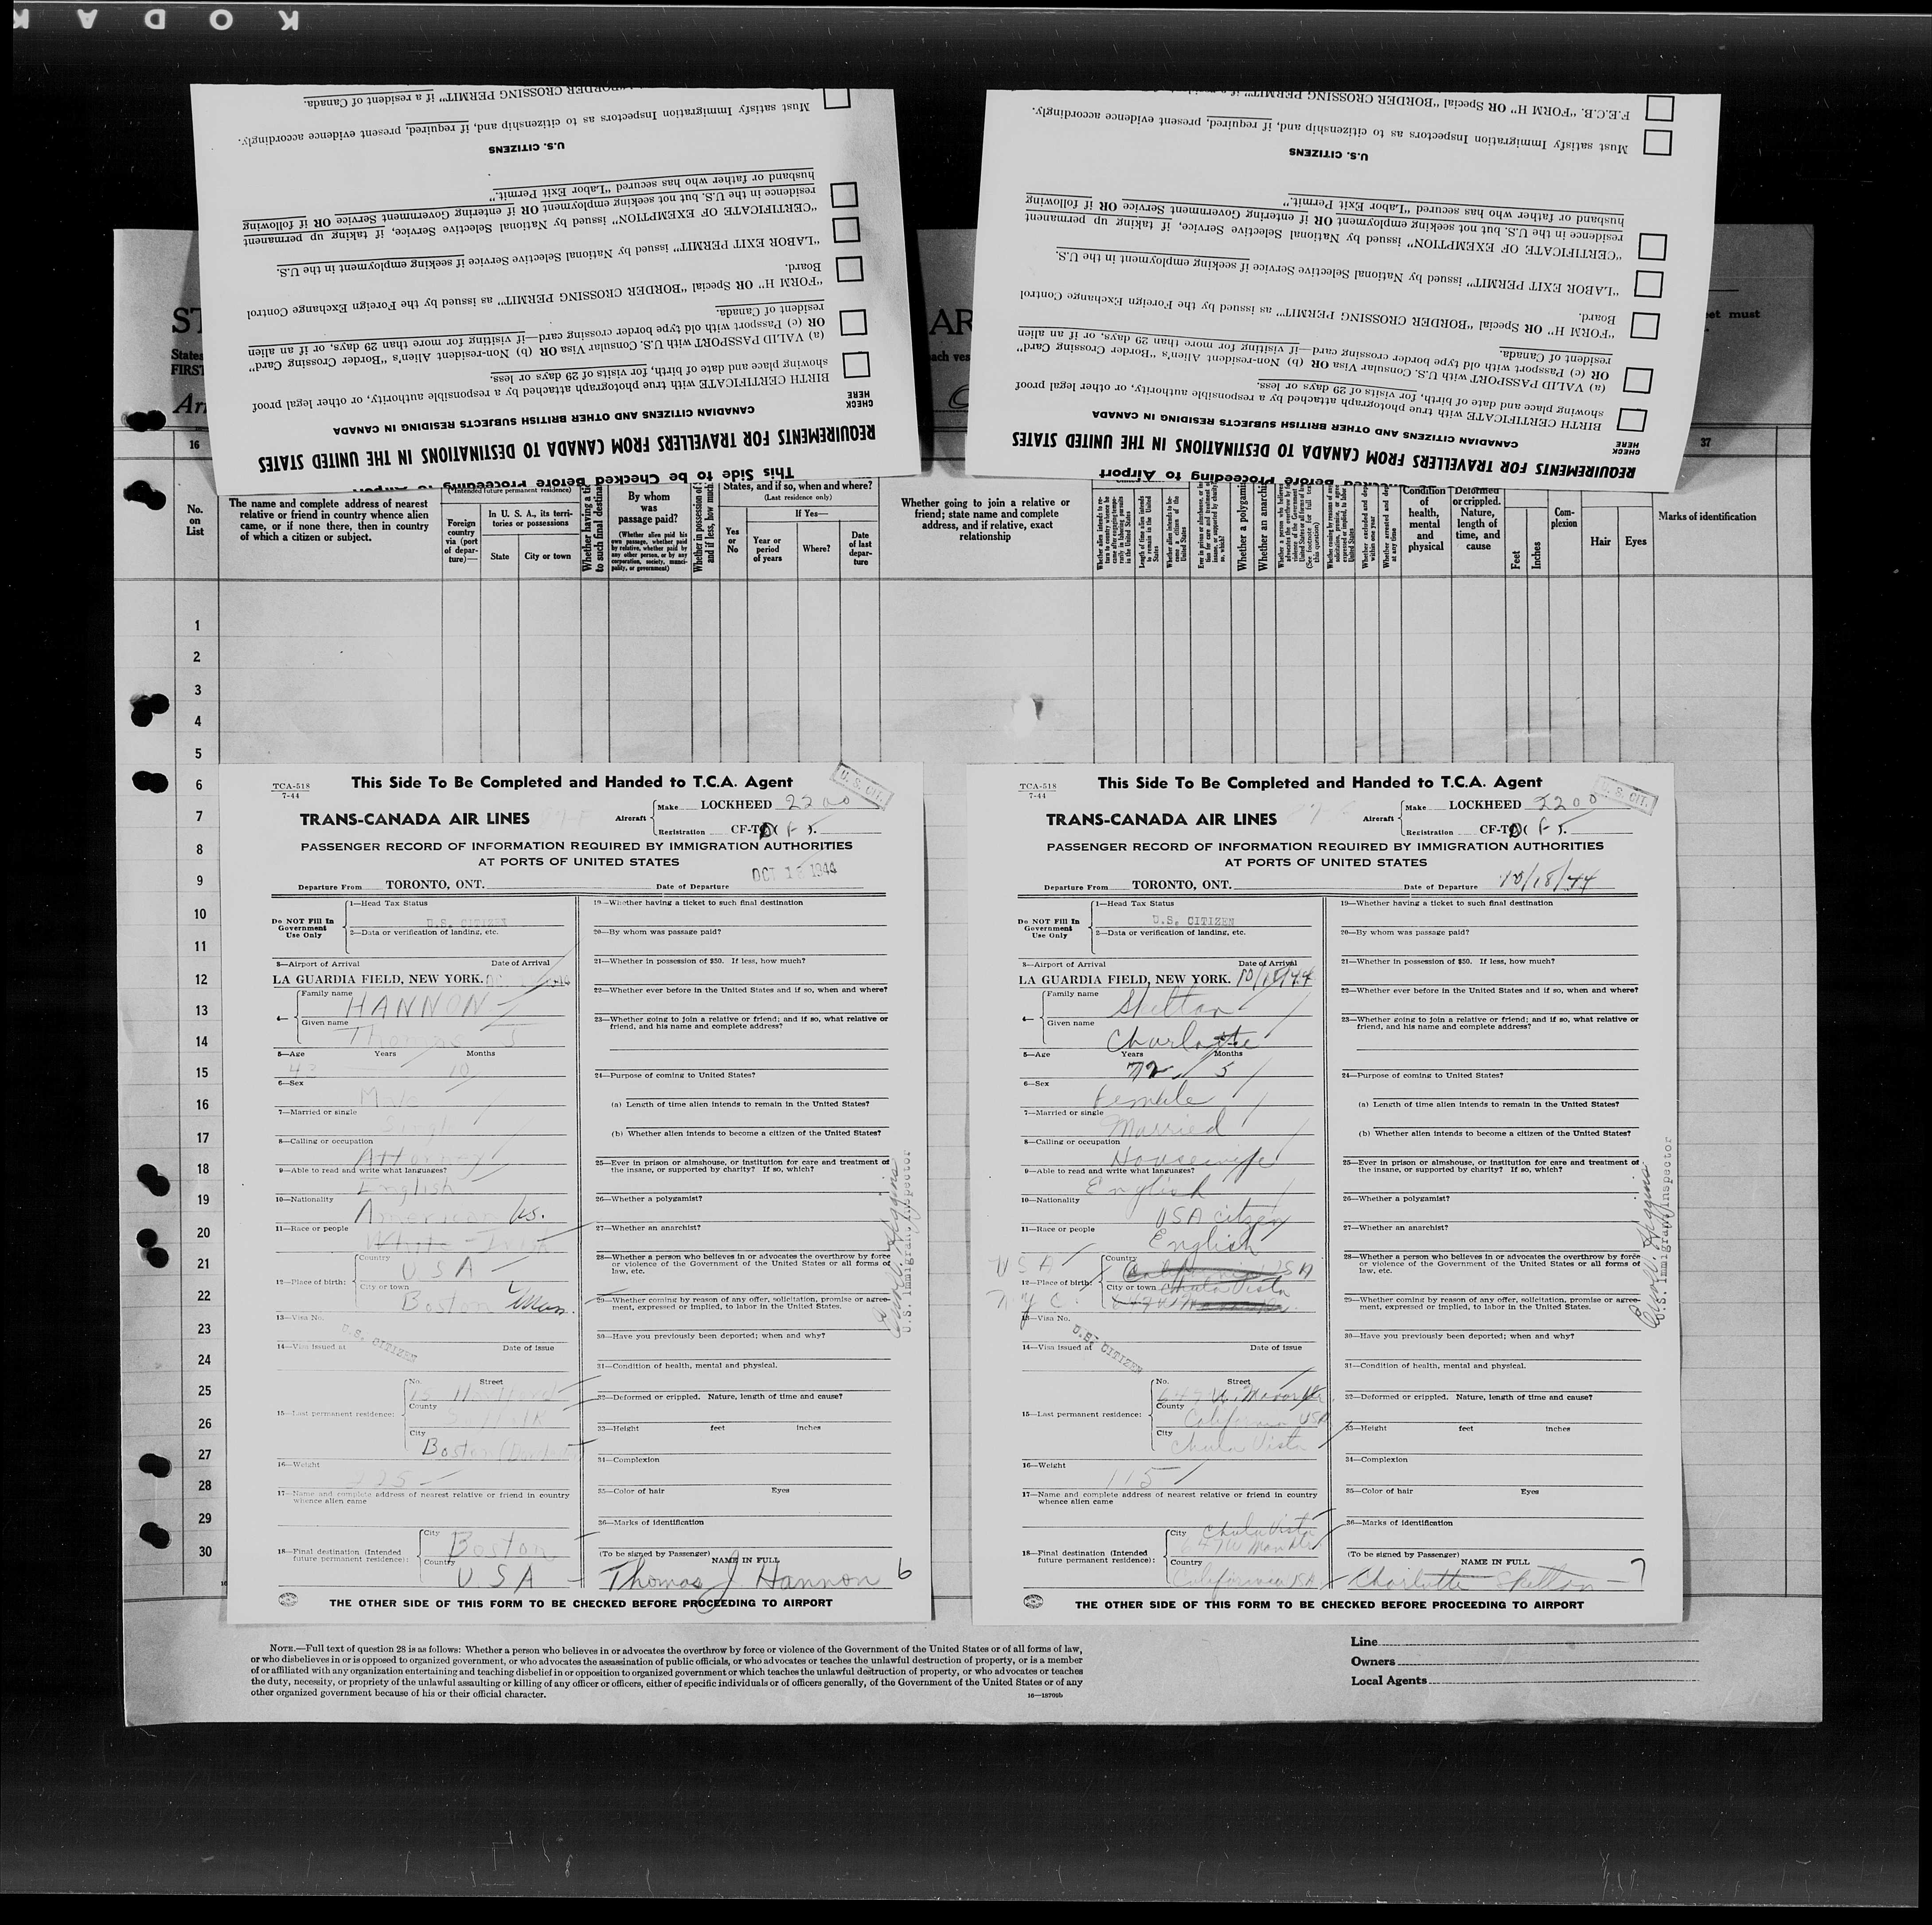 KODAK
BORDER CROSSING PERMIT" if a resident of Canada.
Must satisfy Immigration Inspectors as to citizenship and, if required, present evidence accordingly.
U.S. CITIZENS
"CERTIFICATE OF EXEMPTION" issued by National Selective Service, if taking up permanent
residence in the U.S. but not seeking employment OR if entering Government Service OR if following
husband or father who has secured "Labor Exit Permit."
"LABOR EXIT PERMIT" issued by National Selective Service if seeking employment in the U.S.
"FORM H" OR Special "BORDER CROSSING PERMIT" as issued by the Foreign Exchange Control
Board.
(a) VALID PASSPORT with U.S. Consular Visa OR (b) Non-resident Alien's "Border Crossing Card"
OR (c) Passport with old type border crossing card—if visiting for more than 29 days, or if an alien
resident of Canada.
BIRTH CERTIFICATE with true photograph attached by a responsible authority, or other legal proof
showing place and date of birth, for visits of 29 days or less.
CHECK
HERE
CANADIAN CITIZENS AND OTHER BRITISH SUBJECTS RESIDING IN CANADA
REQUIREMENTS FOR TRAVELLERS FROM CANADA TO DESTINATIONS IN THE UNITED STATES
This Side to be Checked Before Proceeding to Airport
F.E.C.B. "FORM H" OR Special "BORDER CROSSING PERMIT"
Must satisfy Immigration Inspectors as to citizenship and, if required, present evidence accordingly.
U.S. CITIZENS
"CERTIFICATE OF EXEMPTION" issued by National Selective Service, if taking up permanent
residence in the U.S. but not seeking employment OR if entering Government Service OR if following
husband or father who has secured "Labor Exit Permit."
"LABOR EXIT PERMIT" issued by National Selective Service if seeking employment in the U.S.
"FORM H" OR Special "BORDER CROSSING PERMIT" as issued by the Foreign Exchange Control
Board.
(a) VALID PASSPORT with U.S. Consular Visa OR (b) Non-resident Alien's "Border Crossing Card"
OR (c) Passport with old type border crossing card—if visiting for more than 29 days, or if an alien
resident of Canada.
BIRTH CERTIFICATE with true photograph attached by a responsible authority, or other legal proof
showing place and date of birth, for visits of 29 days or less.
CHECK
HERE
CANADIAN CITIZENS AND OTHER BRITISH SUBJECTS RESIDING IN CANADA
REQUIREMENTS FOR TRAVELLERS FROM CANADA TO DESTINATIONS IN THE UNITED STATES
Before Proceeding to Airport
16
37
No.
on
List
The name and complete address of nearest
relative or friend in country whence alien
came, or if none there, then in country
of which a citizen or subject.
(*Intended future permanent residence)
Foreign
country
via (port
of depar-
ture)—
In U. S. A., its terri-
tories or possessions
State
City or town
By whom
was
passage paid?
(Whether alien paid his
own passage, whether paid
by relative, whether paid by
any other person, or by any
corporation, society, munici-
pality, or government)
States, and if so, when and where?
(Last residence only)
Yes
or
No
If Yes—
Year or
period
of years
Where?
Date
of last
depar-
ture
Whether going to join a relative or
friend; state name and complete
address, and if relative, exact
relationship
Whether a polygamist
Whether an anarchist
Condition
of
health,
mental
and
physical
Deformed
or crippled.
Nature,
length of
time, and
cause
Feet
Inches
Com-
plexion
Hair
Eyes
Marks of identification
1
2
3
4
5
6
7
8
9
10
11
12
13
14
15
16
17
18
19
20
21
22
23
24
25
26
27
28
29
30
TCA-518
7-44
This Side To Be Completed and Handed to T.C.A. Agent
U. S. CIT.
TRANS-CANADA AIR LINES
Aircraft
Make LOCKHEED 2200
Registration CF-T
PASSENGER RECORD OF INFORMATION REQUIRED BY IMMIGRATION AUTHORITIES
AT PORTS OF UNITED STATES
Departure From TORONTO, ONT. Date of Departure OCT 18 1944
Do NOT Fill In
Government
Use Only
1—Head Tax Status
U.S. CITIZEN
2—Data or verification of landing, etc.
3—Airport of Arrival Date of Arrival
LA GUARDIA FIELD, NEW YORK.
4— Family name HANNON
Given name Thomas J
5—Age Years Months
42 10
6—Sex Male
7—Married or single Single
8—Calling or occupation Attorney
9—Able to read and write what languages? English
10—Nationality American US.
11—Race or people White
12—Place of birth: Country USA
City or town Boston Mass.
13—Visa No.
U.S. CITIZEN
14—Visa issued at Date of issue
15—Last permanent residence:
No. Street
County
City Boston
16—Weight 225
17—Name and complete address of nearest relative or friend in country
whence alien came
18—Final destination (Intended
future permanent residence):
City Boston
Country USA
19—Whether having a ticket to such final destination
20—By whom was passage paid?
21—Whether in possession of $50. If less, how much?
22—Whether ever before in the United States and if so, when and where?
23—Whether going to join a relative or friend; and if so, what relative or
friend, and his name and complete address?
24—Purpose of coming to United States?
(a) Length of time alien intends to remain in the United States?
(b) Whether alien intends to become a citizen of the United States?
25—Ever in prison or almshouse, or institution for care and treatment of
the insane, or supported by charity? If so, which?
26—Whether a polygamist?
27—Whether an anarchist?
28—Whether a person who believes in or advocates the overthrow by force
or violence of the Government of the United States or all forms of
law, etc.
29—Whether coming by reason of any offer, solicitation, promise or agree-
ment, expressed or implied, to labor in the United States.
30—Have you previously been deported; when and why?
31—Condition of health, mental and physical.
32—Deformed or crippled. Nature, length of time and cause?
33—Height feet inches
34—Complexion
35—Color of hair Eyes
36—Marks of identification
(To be signed by Passenger) NAME IN FULL
Thomas J. Hannon 6
U.S. Immigrant Inspector
THE OTHER SIDE OF THIS FORM TO BE CHECKED BEFORE PROCEEDING TO AIRPORT
TCA-518
7-44
This Side To Be Completed and Handed to T.C.A. Agent
U. S. CIT.
TRANS-CANADA AIR LINES
Aircraft
Make LOCKHEED 2200
Registration CF-T
PASSENGER RECORD OF INFORMATION REQUIRED BY IMMIGRATION AUTHORITIES
AT PORTS OF UNITED STATES
Departure From TORONTO, ONT. Date of Departure 10/18/44
Do NOT Fill In
Government
Use Only
1—Head Tax Status
U.S. CITIZEN
2—Data or verification of landing, etc.
3—Airport of Arrival Date of Arrival
LA GUARDIA FIELD, NEW YORK. 10/18/44
4— Family name Skelton
Given name Charlotte
5—Age Years Months
72 5
6—Sex Female
7—Married or single Married
8—Calling or occupation Housewife
9—Able to read and write what languages? English
10—Nationality USA citizen
11—Race or people English
USA
12—Place of birth: Country
City or town Chula Vista
N Y C
13—Visa No.
U.S. CITIZEN
14—Visa issued at Date of issue
15—Last permanent residence:
No. Street
County California USA
City Chula Vista
16—Weight 115
17—Name and complete address of nearest relative or friend in country
whence alien came
18—Final destination (Intended
future permanent residence):
City Chula Vista
Country California USA
19—Whether having a ticket to such final destination
20—By whom was passage paid?
21—Whether in possession of $50. If less, how much?
22—Whether ever before in the United States and if so, when and where?
23—Whether going to join a relative or friend; and if so, what relative or
friend, and his name and complete address?
24—Purpose of coming to United States?
(a) Length of time alien intends to remain in the United States?
(b) Whether alien intends to become a citizen of the United States?
25—Ever in prison or almshouse, or institution for care and treatment of
the insane, or supported by charity? If so, which?
26—Whether a polygamist?
27—Whether an anarchist?
28—Whether a person who believes in or advocates the overthrow by force
or violence of the Government of the United States or all forms of
law, etc.
29—Whether coming by reason of any offer, solicitation, promise or agree-
ment, expressed or implied, to labor in the United States.
30—Have you previously been deported; when and why?
31—Condition of health, mental and physical.
32—Deformed or crippled. Nature, length of time and cause?
33—Height feet inches
34—Complexion
35—Color of hair Eyes
36—Marks of identification
(To be signed by Passenger) NAME IN FULL
Charlotte Skelton 7
U.S. Immigrant Inspector
THE OTHER SIDE OF THIS FORM TO BE CHECKED BEFORE PROCEEDING TO AIRPORT
NOTE.—Full text of question 28 is as follows: Whether a person who believes in or advocates the overthrow by force or violence of the Government of the United States or of all forms of law,
or who disbelieves in or is opposed to organized government, or who advocates the assassination of public officials, or who advocates or teaches the unlawful destruction of property, or is a member
of or affiliated with any organization entertaining and teaching disbelief in or opposition to organized government or which teaches the unlawful destruction of property, or who advocates or teaches
the duty, necessity, or propriety of the unlawful assaulting or killing of any officer or officers, either of specific individuals or of officers generally, of the Government of the United States or of any
other organized government because of his or their official character.
16—18709b
Line
Owners
Local Agents